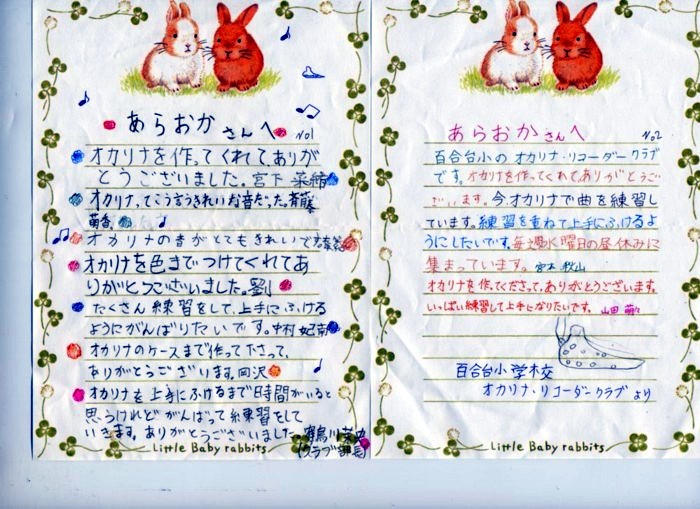 あらおかさんへ No1
オカリナを作ってくれて、ありが
とうございました。宮下 菜緒
オカリナ、てこういうきれいな音だった。斉藤
萌香
オカリナの音がとてもきれいです。
オカリナを色までつけてくれてあ
りがとうございました。劉
たくさん練習をして、上手にふける
ようにがんばりたいです。中村妃南
オカリナのケースまで作って下さって、
ありがとうございます。岡沢
オカリナを上手にふけるまで時間がいると
思うけれどがんばって練習をして
いきます。ありがとうございました。
(クラブ部長)
Little Baby rabbits
あらおかさんへ No2
百合台小のオカリナ・リコーダークラブ
です。オカリナを作ってくれて、ありがとうご
ざいます。今、オカリナで曲を練習し
ています。練習を重ねて上手にふけるよ
うにしたいです。毎週水曜日の昼休みに
集まっています。宮本 秋山
オカリナを作ってくださって、ありがとうございます。
いっぱい練習して上手になりたいです。山田 萌々
百合台小学校
オカリナ・リコーダークラブ より
Little Baby rabbits